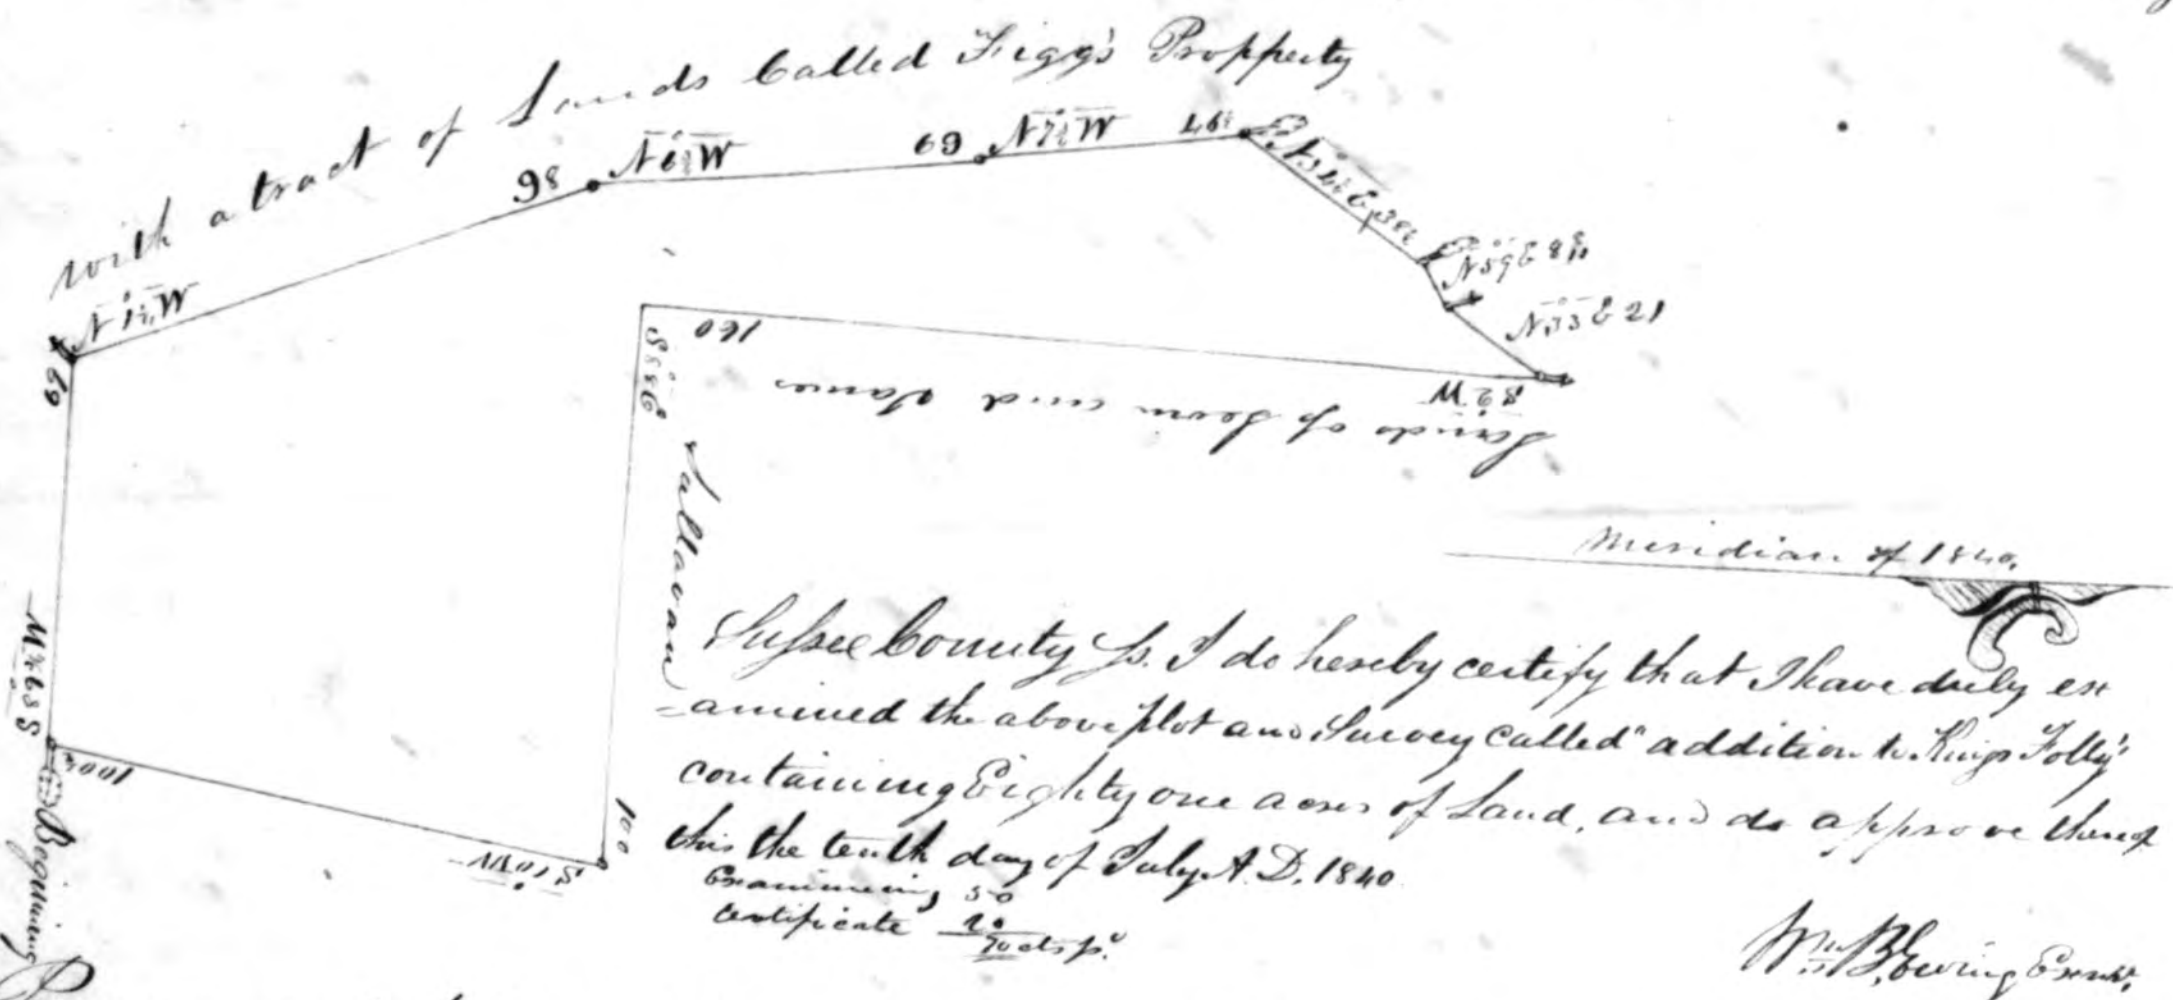 with a tract of Lands Called Figg's Propperty
N 1½ W
98
N 6½ W
69
N 7½ W
46½
N 34½ E 38½
N 59 E 8
N 33 E 21
S 2 W
160
Lands of and James
S 88 E
Callaway
100
S 10 W
100¾
S 89¾ W
69
Beginning
Meridian of 1840.
Sussex County Ss. I do hereby certify that I have duly ex
=amined the above plot and Survey Called "addition to Kings Folly"
containing Eighty one acres of Land, and do approve thereof
this the tenth day of July A.D. 1840
Examining 50
Certificate 20
70 cts pd
Wm B. Ewing Examr.